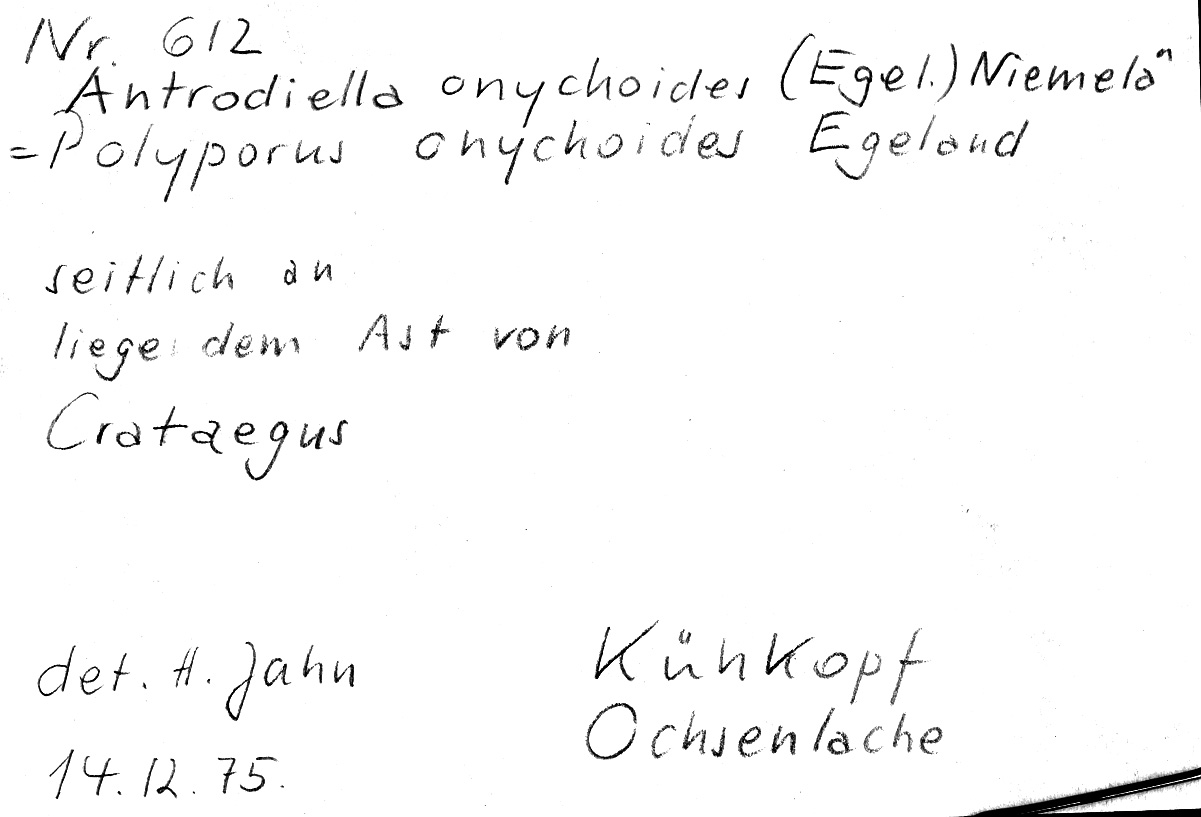 Nr. 612
Antrodiella onychoides (Egel.) Niemelä
= Polyporus onychoides Egeland
seitlich an
liegendem Ast von
Crataegus
det. H. Jahn
Kühkopf
Ochsenlache
14.12.75.